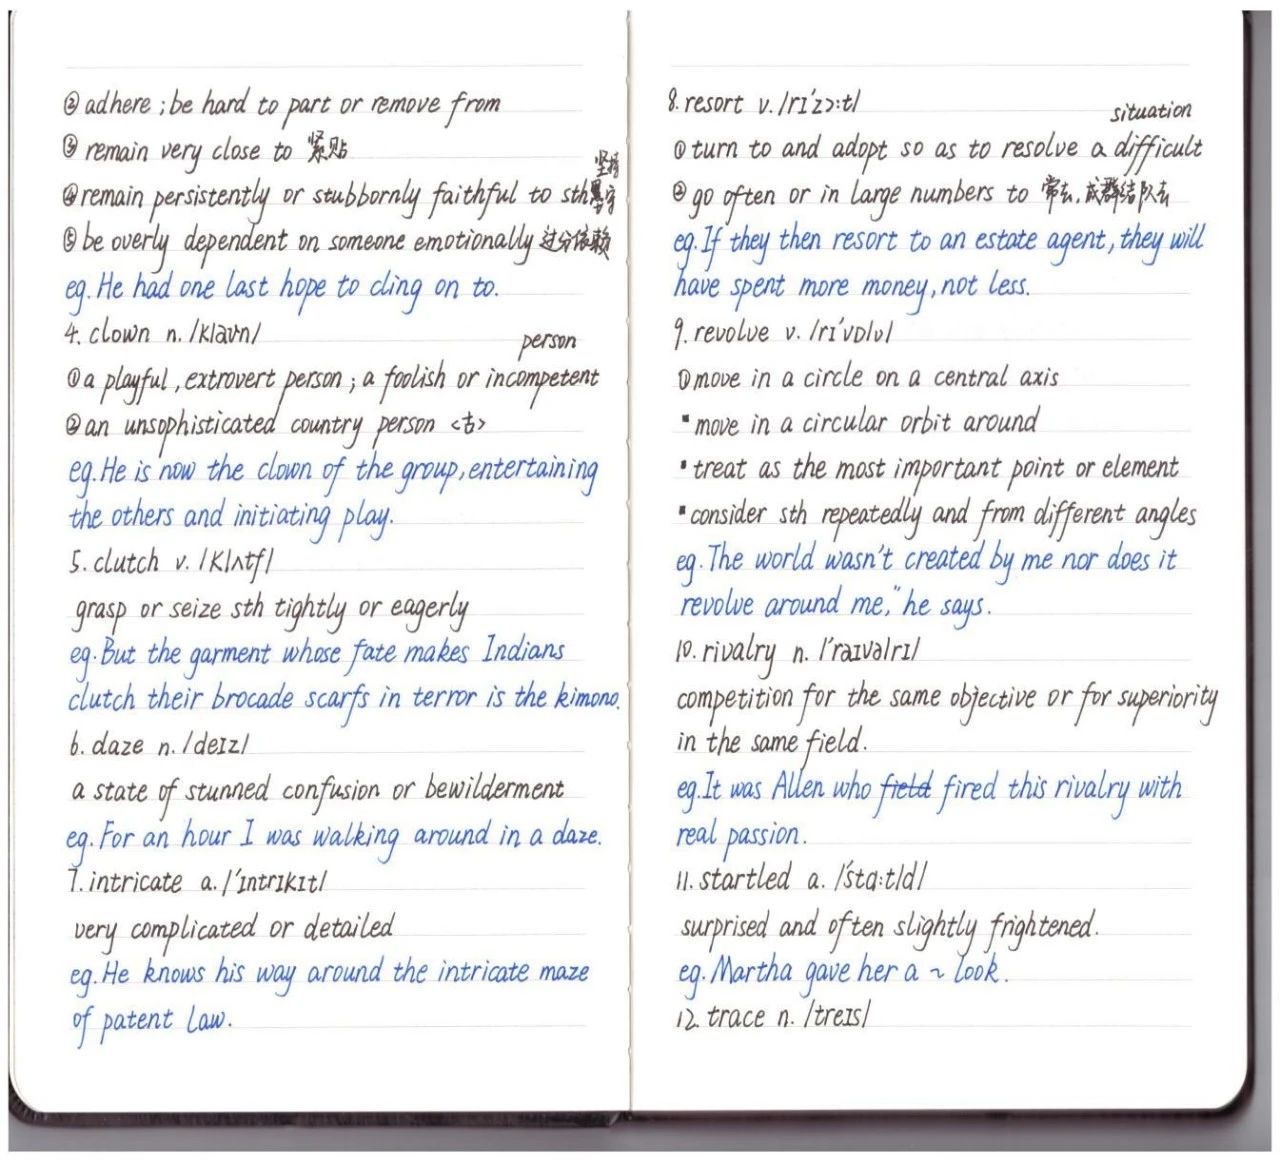 ②adhere ; be hard to part or remove from
③remain very close to 紧贴
④remain persistently or stubbornly faithful to sth 坚持墨守
⑤be overly dependent on someone emotionally 过分依赖
eg. He had one last hope to cling on to.
4. clown n. /klaʊn/
①a playful, extrovert person ; a foolish or incompetent person
②an unsophisticated country person <古>
eg. He is now the clown of the group, entertaining
the others and initiating play.
5. clutch v. /klʌtʃ/
grasp or seize sth tightly or eagerly
eg. But the garment whose fate makes Indians
clutch their brocade scarfs in terror is the kimono.
6. daze n. /deɪz/
a state of stunned confusion or bewilderment
eg. For an hour I was walking around in a daze.
7. intricate a. /'ɪntrɪkɪt/
very complicated or detailed
eg. He knows his way around the intricate maze
of patent law.
8. resort v. /rɪ'zɔ:t/
①turn to and adopt so as to resolve a difficult situation
②go often or in large numbers to 常去,成群结队去
eg. If they then resort to an estate agent, they will
have spent more money, not less.
9. revolve v. /rɪ'vɒlv/
①move in a circle on a central axis
▪move in a circular orbit around
▪treat as the most important point or element
▪consider sth repeatedly and from different angles
eg. The world wasn't created by me nor does it
revolve around me," he says.
10. rivalry n. /'raɪvəlrɪ/
competition for the same objective or for superiority
in the same field.
eg. It was Allen who field fired this rivalry with
real passion.
11. startled a. /'stɑ:tld/
surprised and often slightly frightened.
eg. Martha gave her a ~ look.
12. trace n. /treɪs/